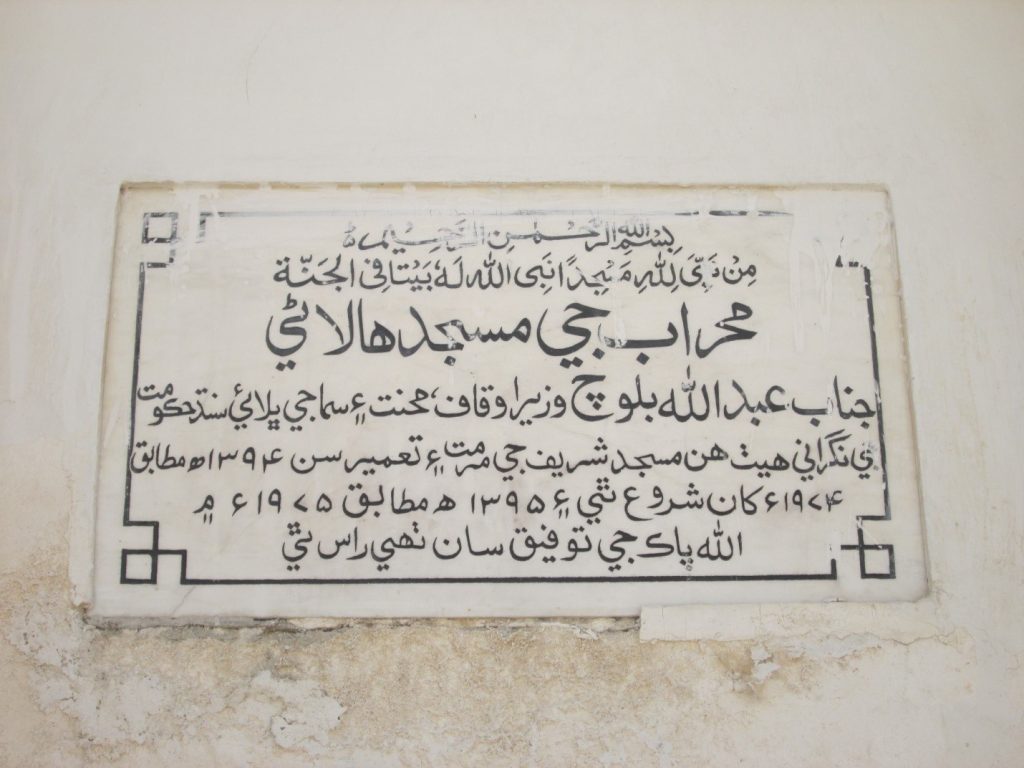 بِسْمِ اللهِ الرَّحْمٰنِ الرَّحِيْمِ ہ
مِنْ بَنَىٰ لِلّٰهِ مَسْجِدًا بَنِى اللّٰه لَهٗ بَيْتًا فِى الجَنَّة
محراب جي مسجد هالاڻي
جناب عبدالله بلوچ وزير اوقاف، محنت ۽ سماجي ڀلائي سنڌ حڪومت
جي نگراني هيٺ هن مسجد شريف جي مرمت ۽ تعمير سن ۱۳۹۴ھ مطابق
۱۹۷۴ع کان شروع ٿي ۽ ۱۳۹۵ھ مطابق ۱۹۷۵ع ۾
الله پاڪ جي توفيق سان ٺهي راس ٿي